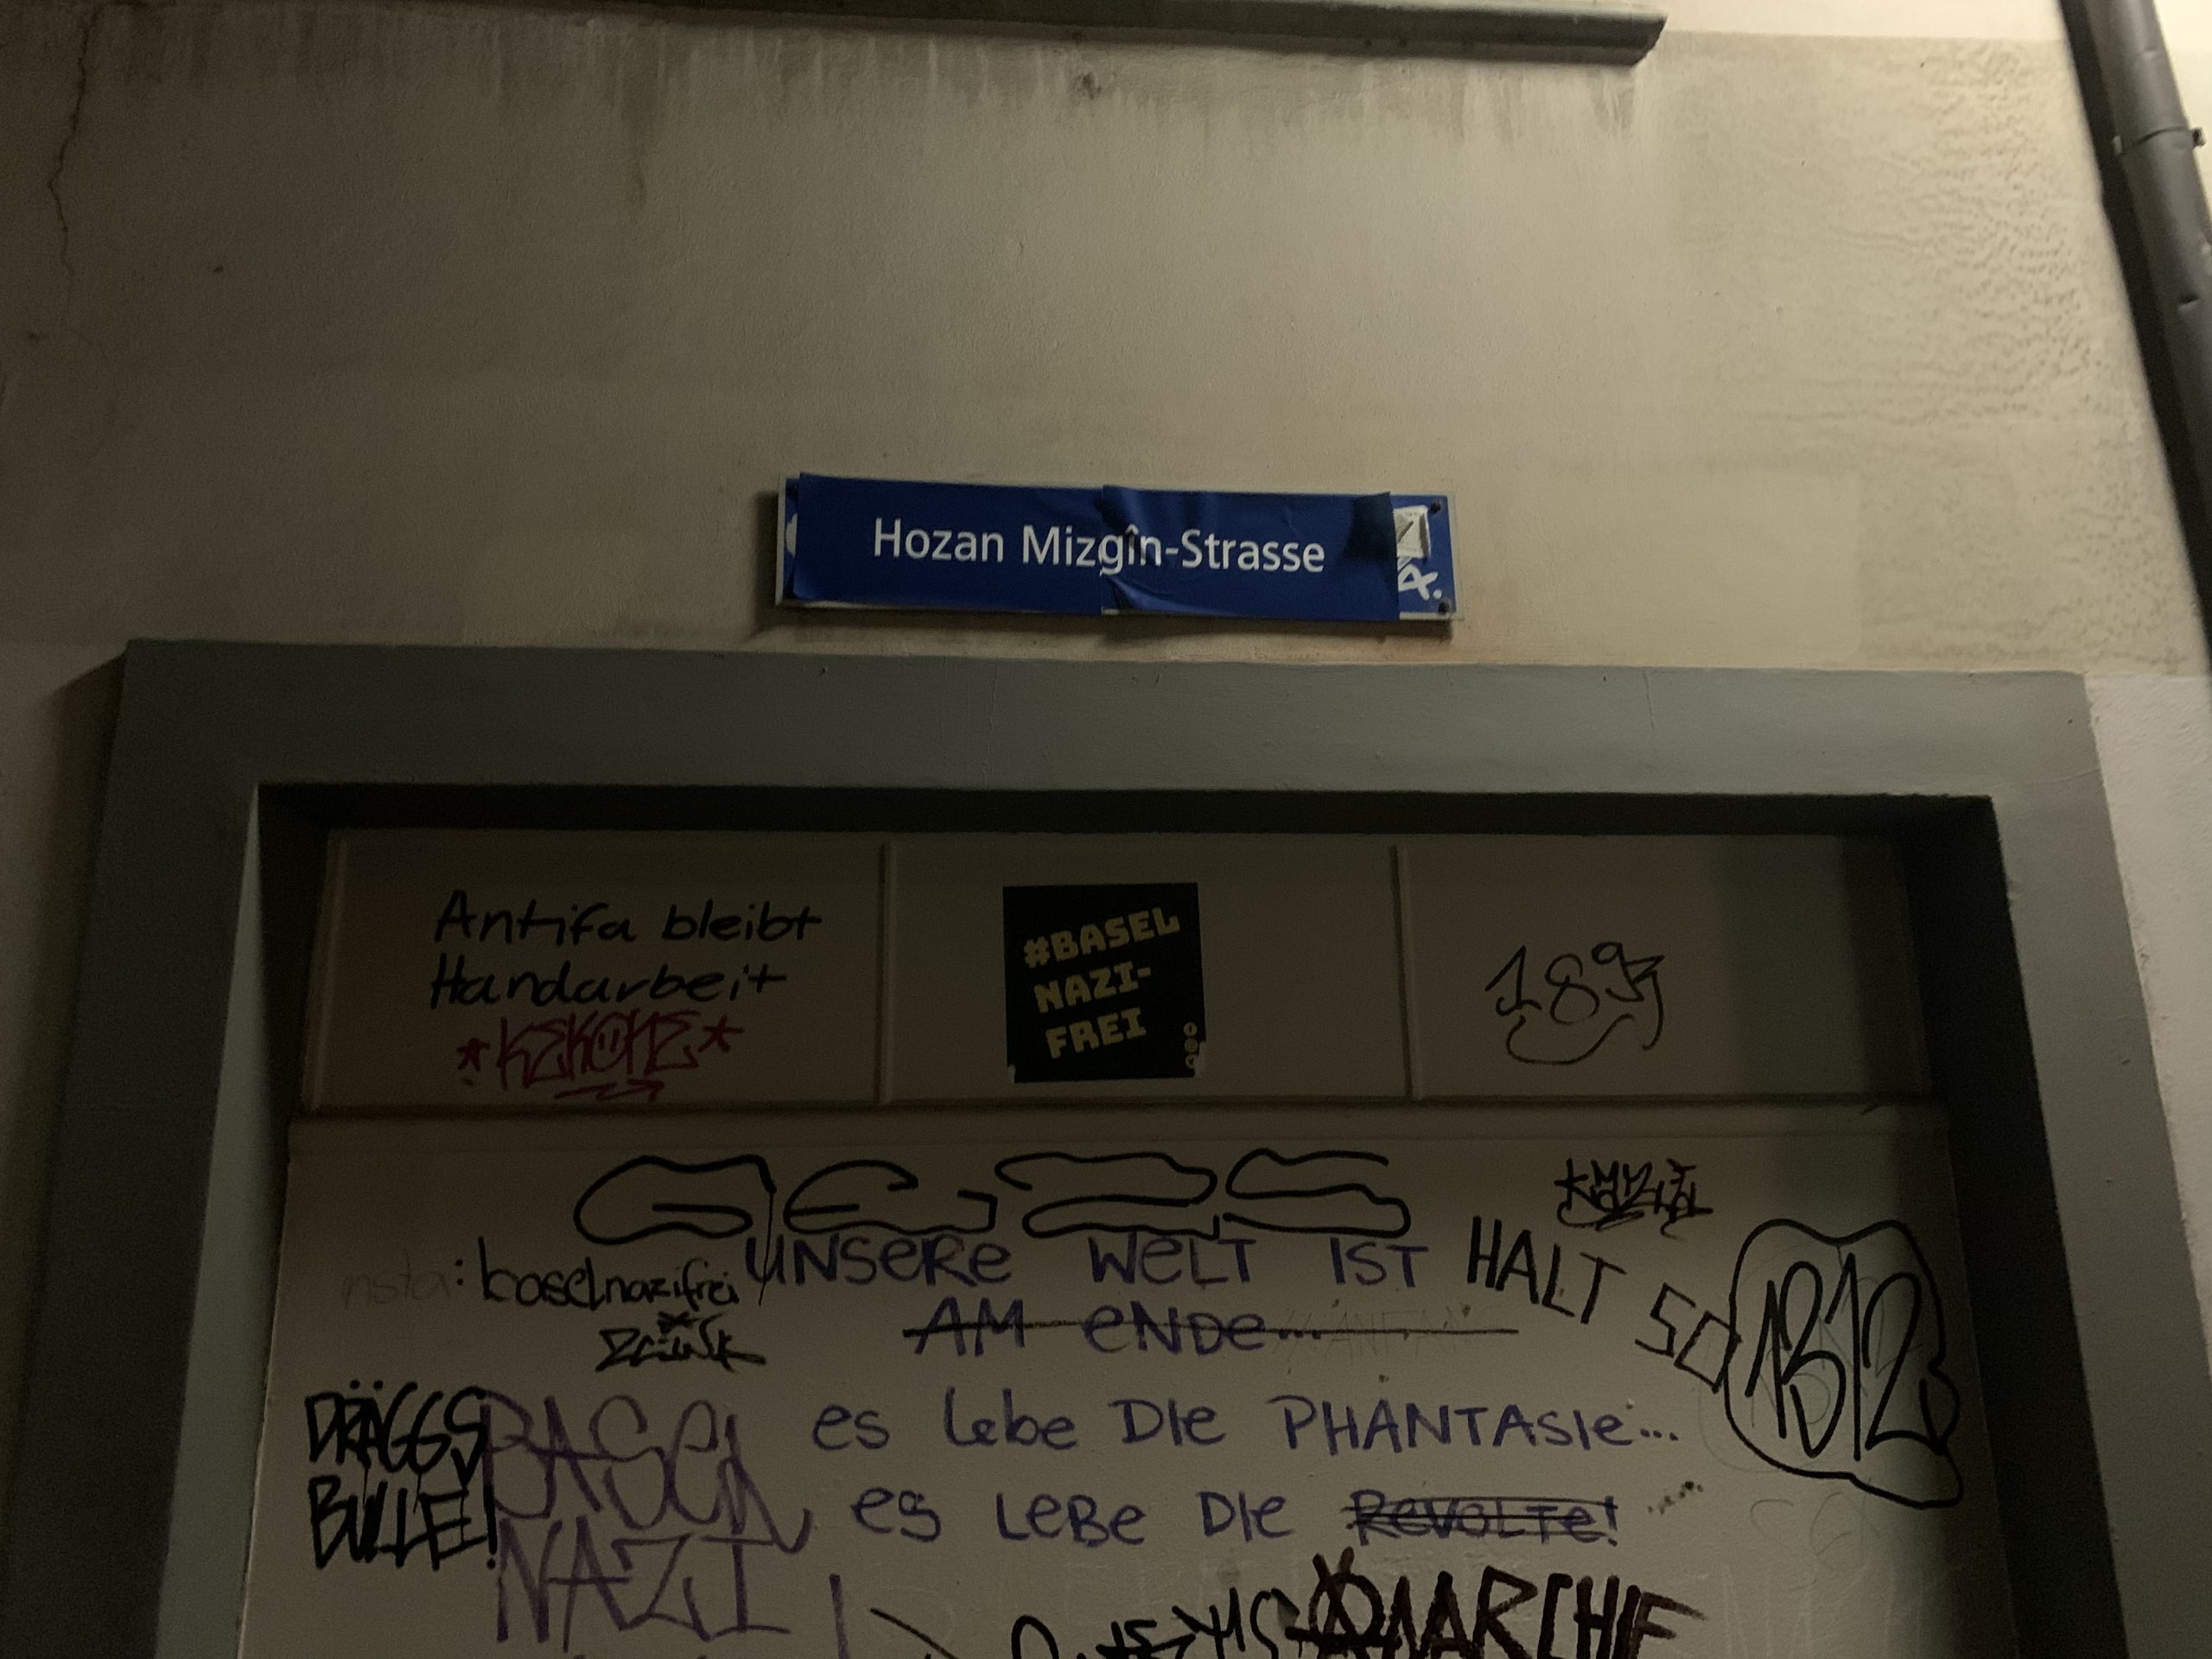 Hozan Mizgîn-Strasse
A.
Antifa bleibt
Handarbeit
#BASEL
NAZI-
FREI
189
UNSERE WELT IST HALT SO
insta: baselnazifrei
AM ENDE...
1312
DRÄGGS
BULLE!
BASEL
NAZI
es lebe DIE PHANTASIE...
es LEBE DIE REVOLTE!
ANARCHIE